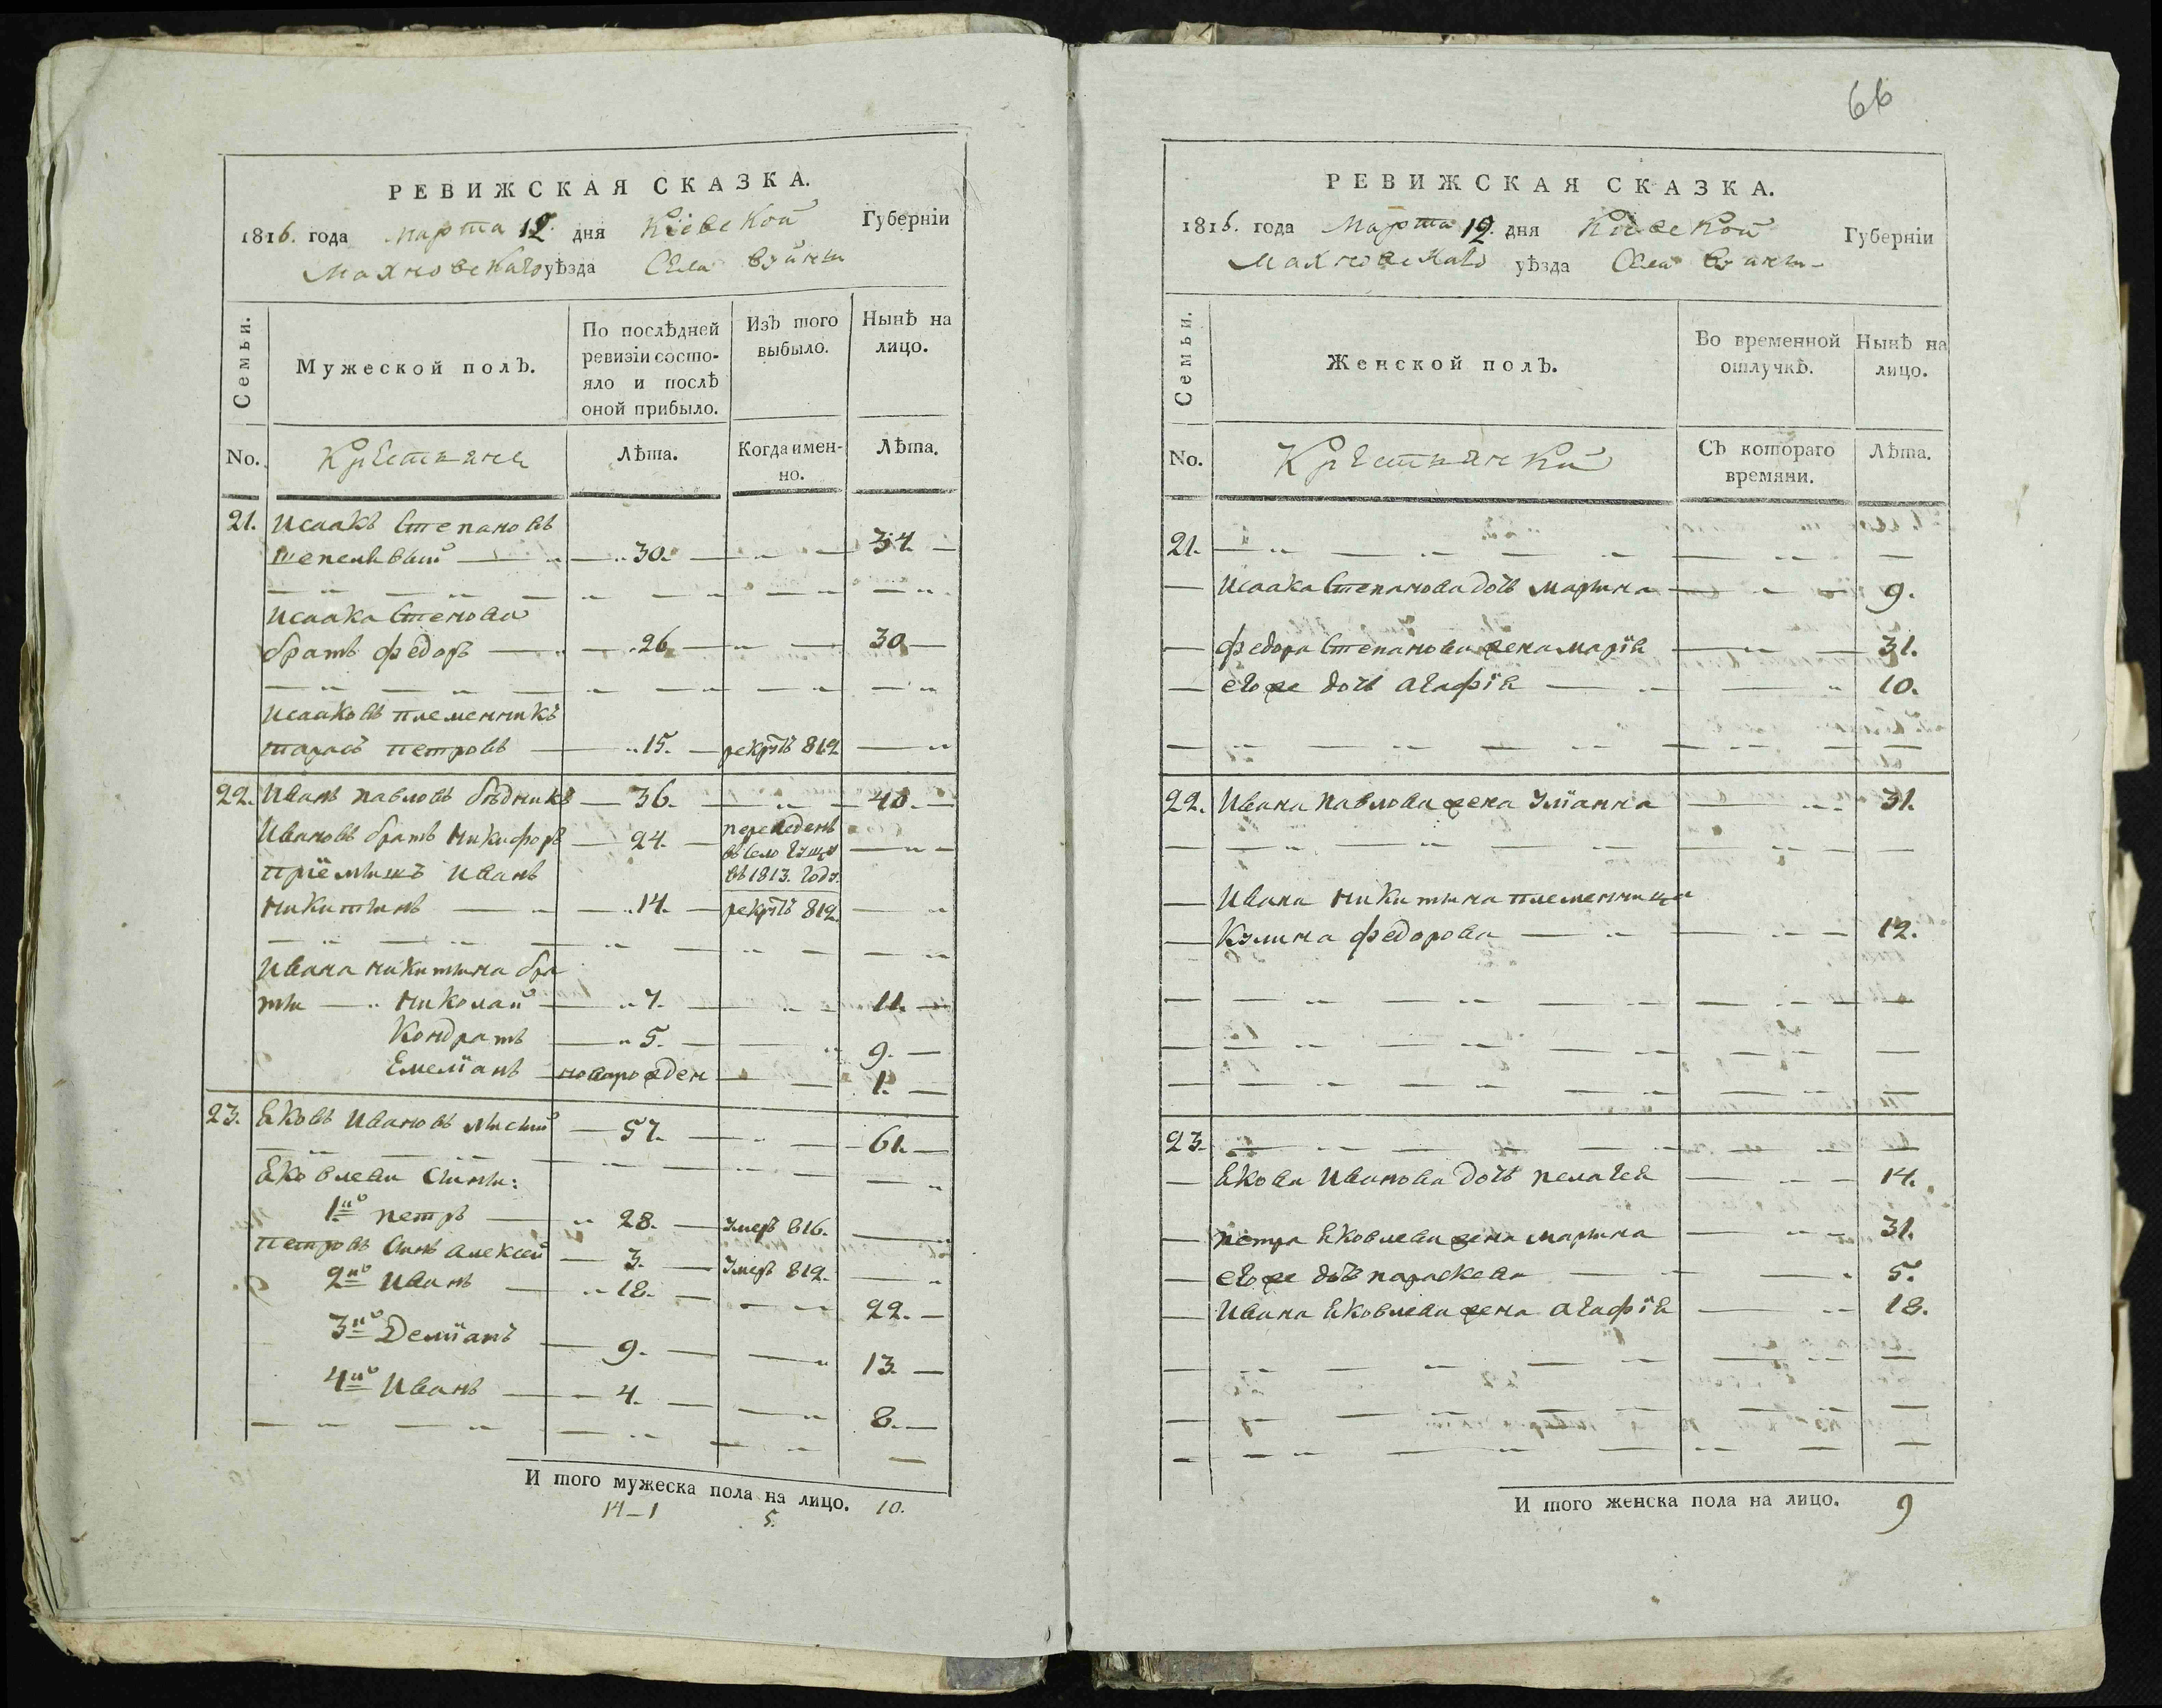 РЕВИЖСКАЯ СКАЗКА.
1816. года марта 12. дня Кіевской Губерніи
Махновскаго уѣзда Села
Семьи.
Мужеской полъ.
По послѣдней ревизіи состояло и послѣ оной прибыло.
Изъ того выбыло.
Нынѣ на лицо.
No.
Крестьяне
Лѣта.
Когда именно.
Лѣта.
21. Исаакъ Степановъ
30. 34.
Исаака
братъ Федоръ 26 30
Исааковъ племенникъ
тарасъ петровъ 15. рекрутъ 812
22. Иванъ павловъ бѣдникъ 36. 40.
Ивановъ братъ Никифоръ 24. переведенъ
въ село
въ 1813. году.
пріёмышъ Иванъ
Никитинъ 14. рекрутъ 812.
Ивана никитина бра
ты Николай 7. 11.
Кондратъ 5. 9.
Емеліанъ новорожден 1.
23. Яковъ Ивановъ лысый 57. 61.
Яковлевы сыны:
1й петръ 28. умеръ 816.
петровъ сынъ алексей 3. умеръ 812.
2й Иванъ 18. 22.
3й Деміанъ 9. 13.
4й Иванъ 4. 8.
И того мужеска пола на лицо. 10.
14-1 5.
66
РЕВИЖСКАЯ СКАЗКА.
1816. года Марта 12. дня Кіевской Губерніи
Махновскаго уѣзда Села
Семьи.
Женской полъ.
Во временной отлучкѣ.
Нынѣ на лицо.
No.
Крестьянки
Съ котораго времяни.
Лѣта.
21.
Исаака Степанова дочь Марина 9.
федора Степанова жена марія 31.
его же дочь агафія 10.
22. Ивана павлова жена уліанна 31.
Ивана никитина племенница
Кулина федорова 12.
23.
Якова Иванова дочь пелагея 14.
петра Яковлева жена марина 31.
его же дочь параскева 5.
Ивана Яковлева жена агафія 18.
И того женска пола на лицо. 9